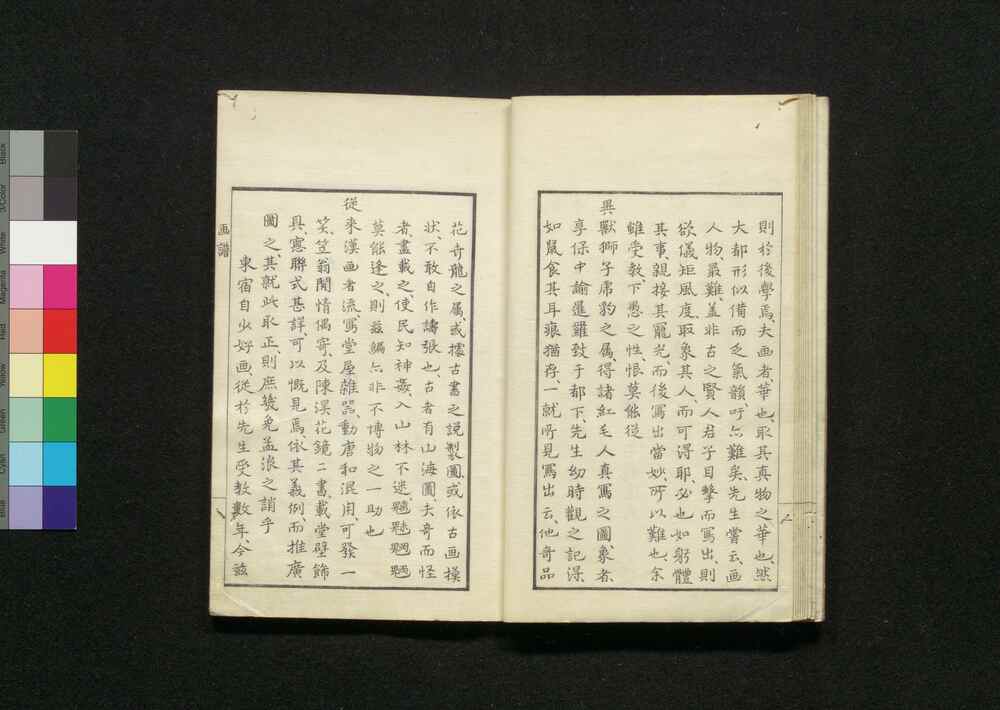 則於後學焉、夫画者、華也、取其真物之華也、然
大都形似備而乏氣韻、吁亦難矣、先生嘗云、画
人物最難、盖非古之賢人君子目擊而寫出、則
欲儀矩風度取象其人、而可得耶、必也如躬體
其事、親接其寵光、而後寫出當妙、所以難也、余
雖受教、下愚之性、恨莫能從
異獸獅子虎豹之属、得諸紅毛人真寫之圖、象者、
享保中諭暹羅致于都下、先生幼時觀之、記淂
如鼠食其耳痕猶存、一就所見寫出云、他奇品
花奇龍之属、或據古書之説製圖、或依古画模
状、不敢自作譸張也、古者有山海圖、夫奇而怪
者、畫載之、使民知神姦、入山林不迷、魑魅魍魎
莫能逢之、則茲編亦非不博物之一助也
從来漢画者流、寫堂屋雜器、動唐和混用、可發一
笑、笠翁閒情偶寄、及陳淏花鏡二書、載堂壁飾
具、窓聯式甚詳、可以慨見焉、依其義例而推廣
圖之、其就此取正、則庶幾免孟浪之誚乎
東宿自少好画、從於先生受教數年、今茲
画譜
Black
3/Color
White
Magenta
Red
Yellow
Green
Cyan
Blue